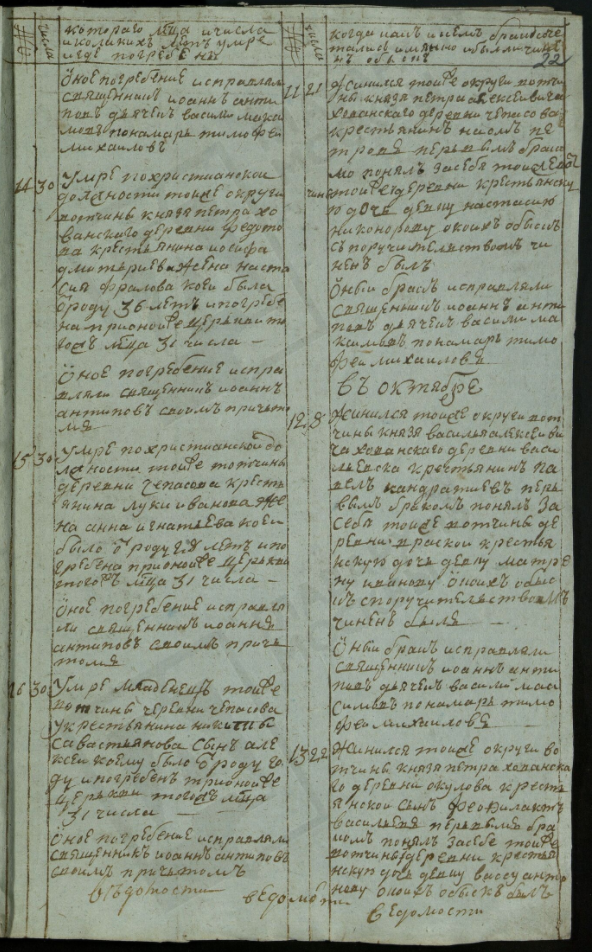 котораго мца ичисла
иколикихъ летъ умре
игде погребены
Оное погребение исправляли
священникъ иоаннъ анти
повъ дьячекъ василий макси
мовъ пономарь тимофей
михайловъ
14 30 Умре похристианской
должности тойже округи
вотчины князя петра хо
ванскаго деревни федото
ва крестьянина иосифа
дмитриева жена наста
сия фралова коей было
отроду 36 летъ ипогребе
на прионой же церькви то
гожъ мца 31 числа
Оное погребение испра
вляли священникъ иоаннъ
антиповъ своимъ причето
мъ
15 30 Умре похристианской до
лжности тойже вотчины
деревни чепасова кресть
янина луки иванова же
на анна игнатьева коей
было отроду летъ ипо
гребена прионой же церькви
тогожъ мца 31 числа
Оное погребение исправля
ли священникъ иоаннъ
антиповъ своимъ приче
томъ
16 30 Умре младенецъ тойже
вотчины деревни чепасова
укрестьянина никиты
савастьянова сынъ але
ксей коему было отроду го
ду ипогребенъ прионой же
церькви тогожъ мца
31 числа
Оное погребение исправляли
священникъ иоаннъ антиповъ
своимъ причетомъ
въдомости
ведомости
22
11 21 Женился тойже округи вотчи
ны князя петра алексеевича
хованскаго деревни чепасова
крестьянинъ наумъ пе
тровъ первымъ брако
мъ понялъ засебя
тойже деревни крестьянску
ю дочь девку настасию
никонорову окоихъ обыскъ
съ поручительствомъ чи
ненъ былъ
Оный бракъ исправляли
священникъ иоаннъ анти
повъ дьячекъ василий ма
ксимовъ пономарь тимо
фей михайловъ
въ октябре
12 8 Женился тойже округи вот
чины князя василья алексееви
ча хованскаго деревни васи
льевска крестьянинъ па
велъ кандратиевъ перь
вымъ бракомъ понялъ за
себя тойже вотчины де
ревни крестья
нскую дочь девку матре
ну иванову окоихъ обыс
къ споручительствомъ
чиненъ былъ
Оный бракъ исправляли
священникъ иоаннъ анти
повъ дьячекъ василий мак
симовъ пономарь тимо
фей михайловъ
13 22 Женился тойже округи во
тчины князя петра хованска
го деревни окулова кресть
янской сынъ феофилактъ
васильевъ первымъ бра
комъ понялъ засебя тойже
вотчины деревни крестья
нскую дочь девку вассу анто
нову окоихъ обыскъ былъ
ведомости